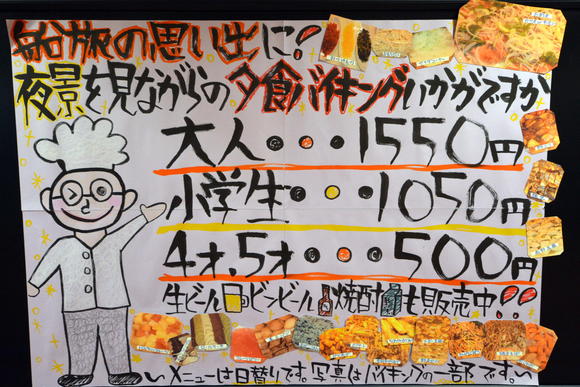 船旅の思い出に!
夜景を見ながらの夕食バイキングいかがですか
大人・・・1550円
小学生・・・1050円
4才、5才・・・500円
生ビール ビンビール 焼酎も販売中!!
メニューは日替りです。写真はバイキングの一部です。